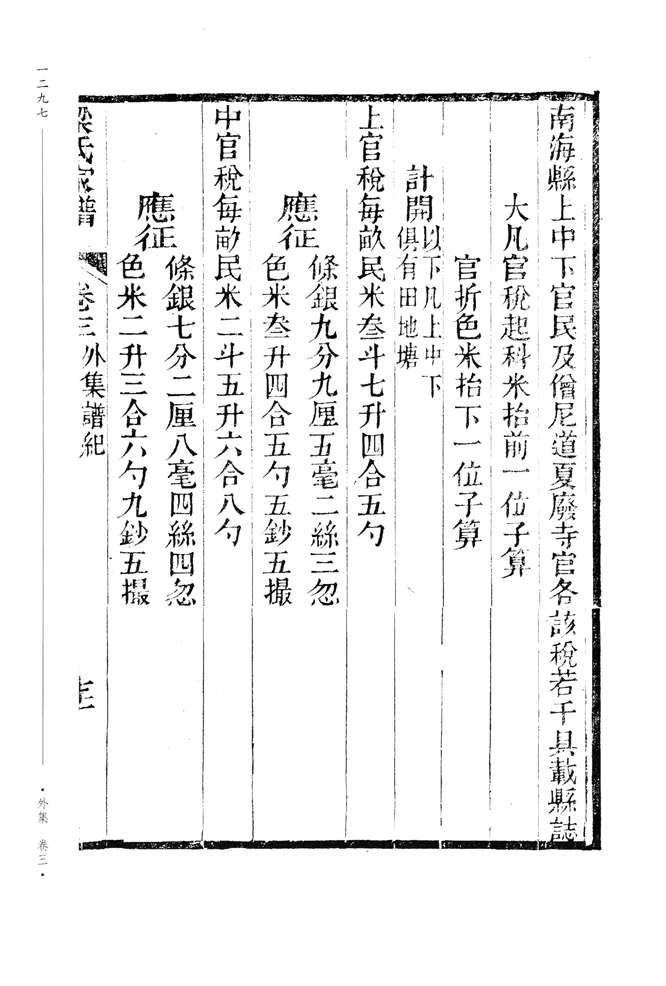 南海縣上中下官民及僧尼道夏廢寺官各該稅若干具載縣誌
大凡官稅起科米抬前一位子算
官折色米抬下一位子算
計開
以下凡上中下
俱有田地塘
上官稅每畝民米叁斗七升四合五勺
應征
條銀九分九厘五毫二絲三忽
色米叁升四合五勺五鈔五撮
中官稅每畝民米二斗五升六合八勺
應征
條銀七分二厘八毫四絲四忽
色米二升三合六勺九鈔五撮
梁氏家譜 卷三外集譜紀
一二九七
·外集 卷三·